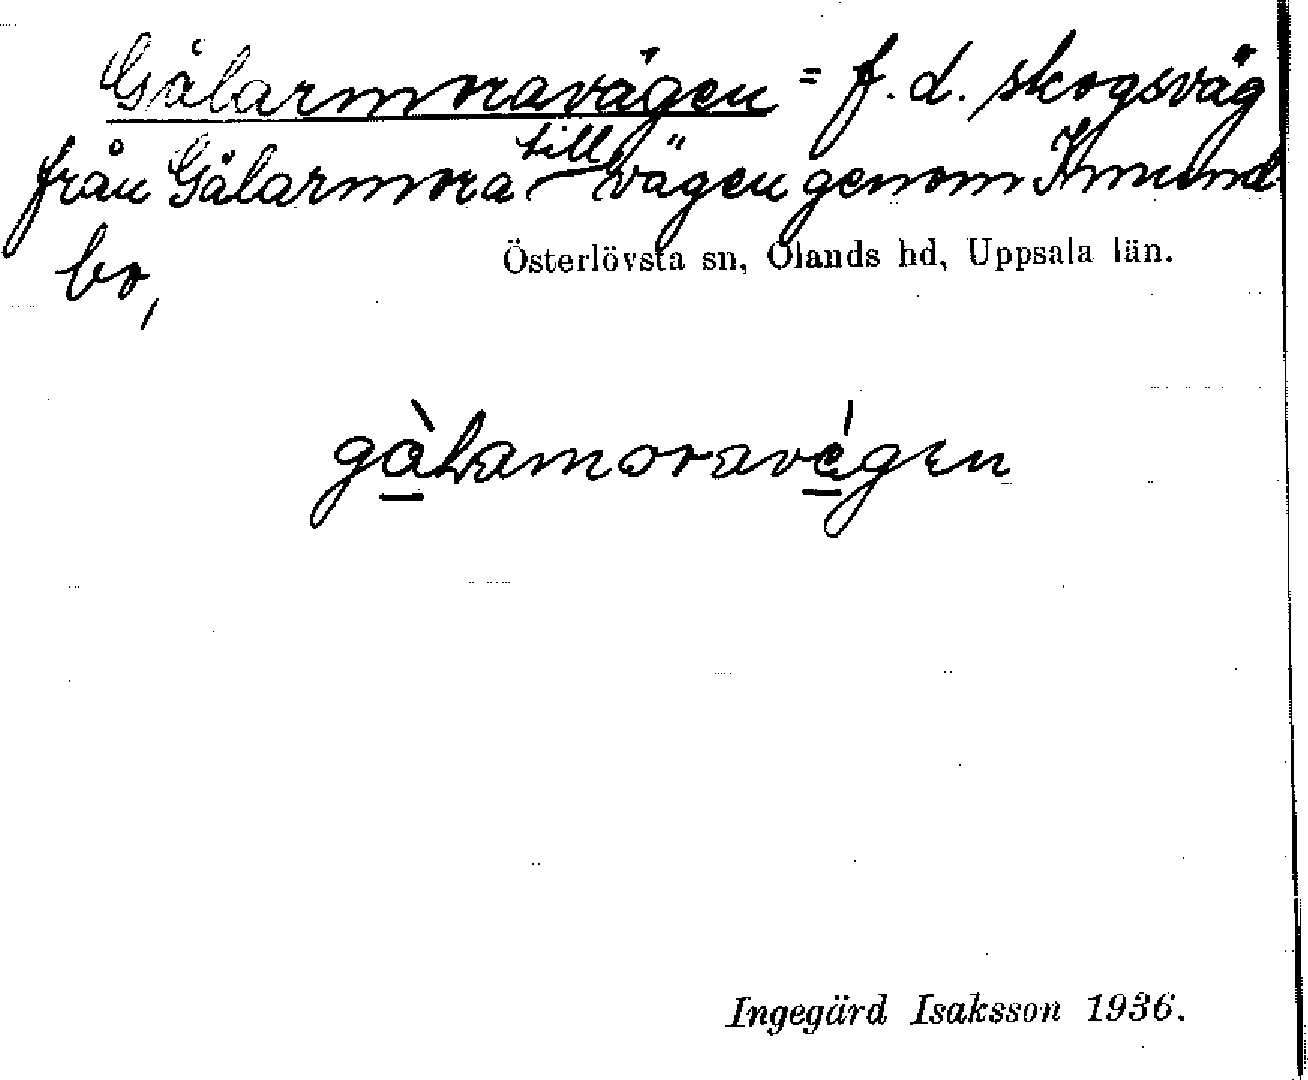 Gålarmoravägen = f.d. skogsväg
från Gålarmora till vägen genom Kmund-
bo,
Österlövsta sn, Olands hd, Uppsala län.
gàlamoravégen
Ingegärd Isaksson 1936.